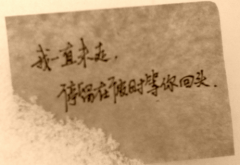 我一直未走.
停留在时等你回头.